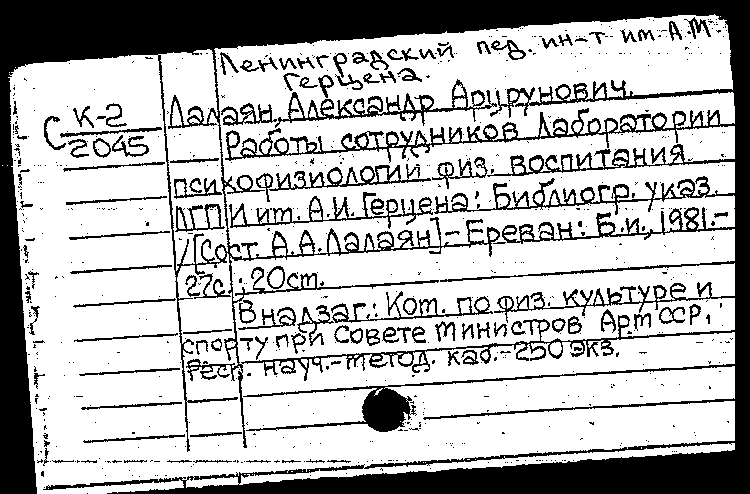 Ленинградский пед. ин-т им. А.И.
Герцена.
С К-2
2045
Лалаян, Александр Арцрунович.
Работы сотрудников лаборатории
психофизиологии физ. воспитания
ЛГПИ им. А.И. Герцена: Библиогр. указ.
/[Сост. А.А. Лалаян] - Ереван: Б.и., 1981.-
27с.; 20см.
В надзаг.: Ком. по физ. культуре и
спорту при Совете Министров Арм ССР,
Респ. науч.-метод. каб.-250 экз.